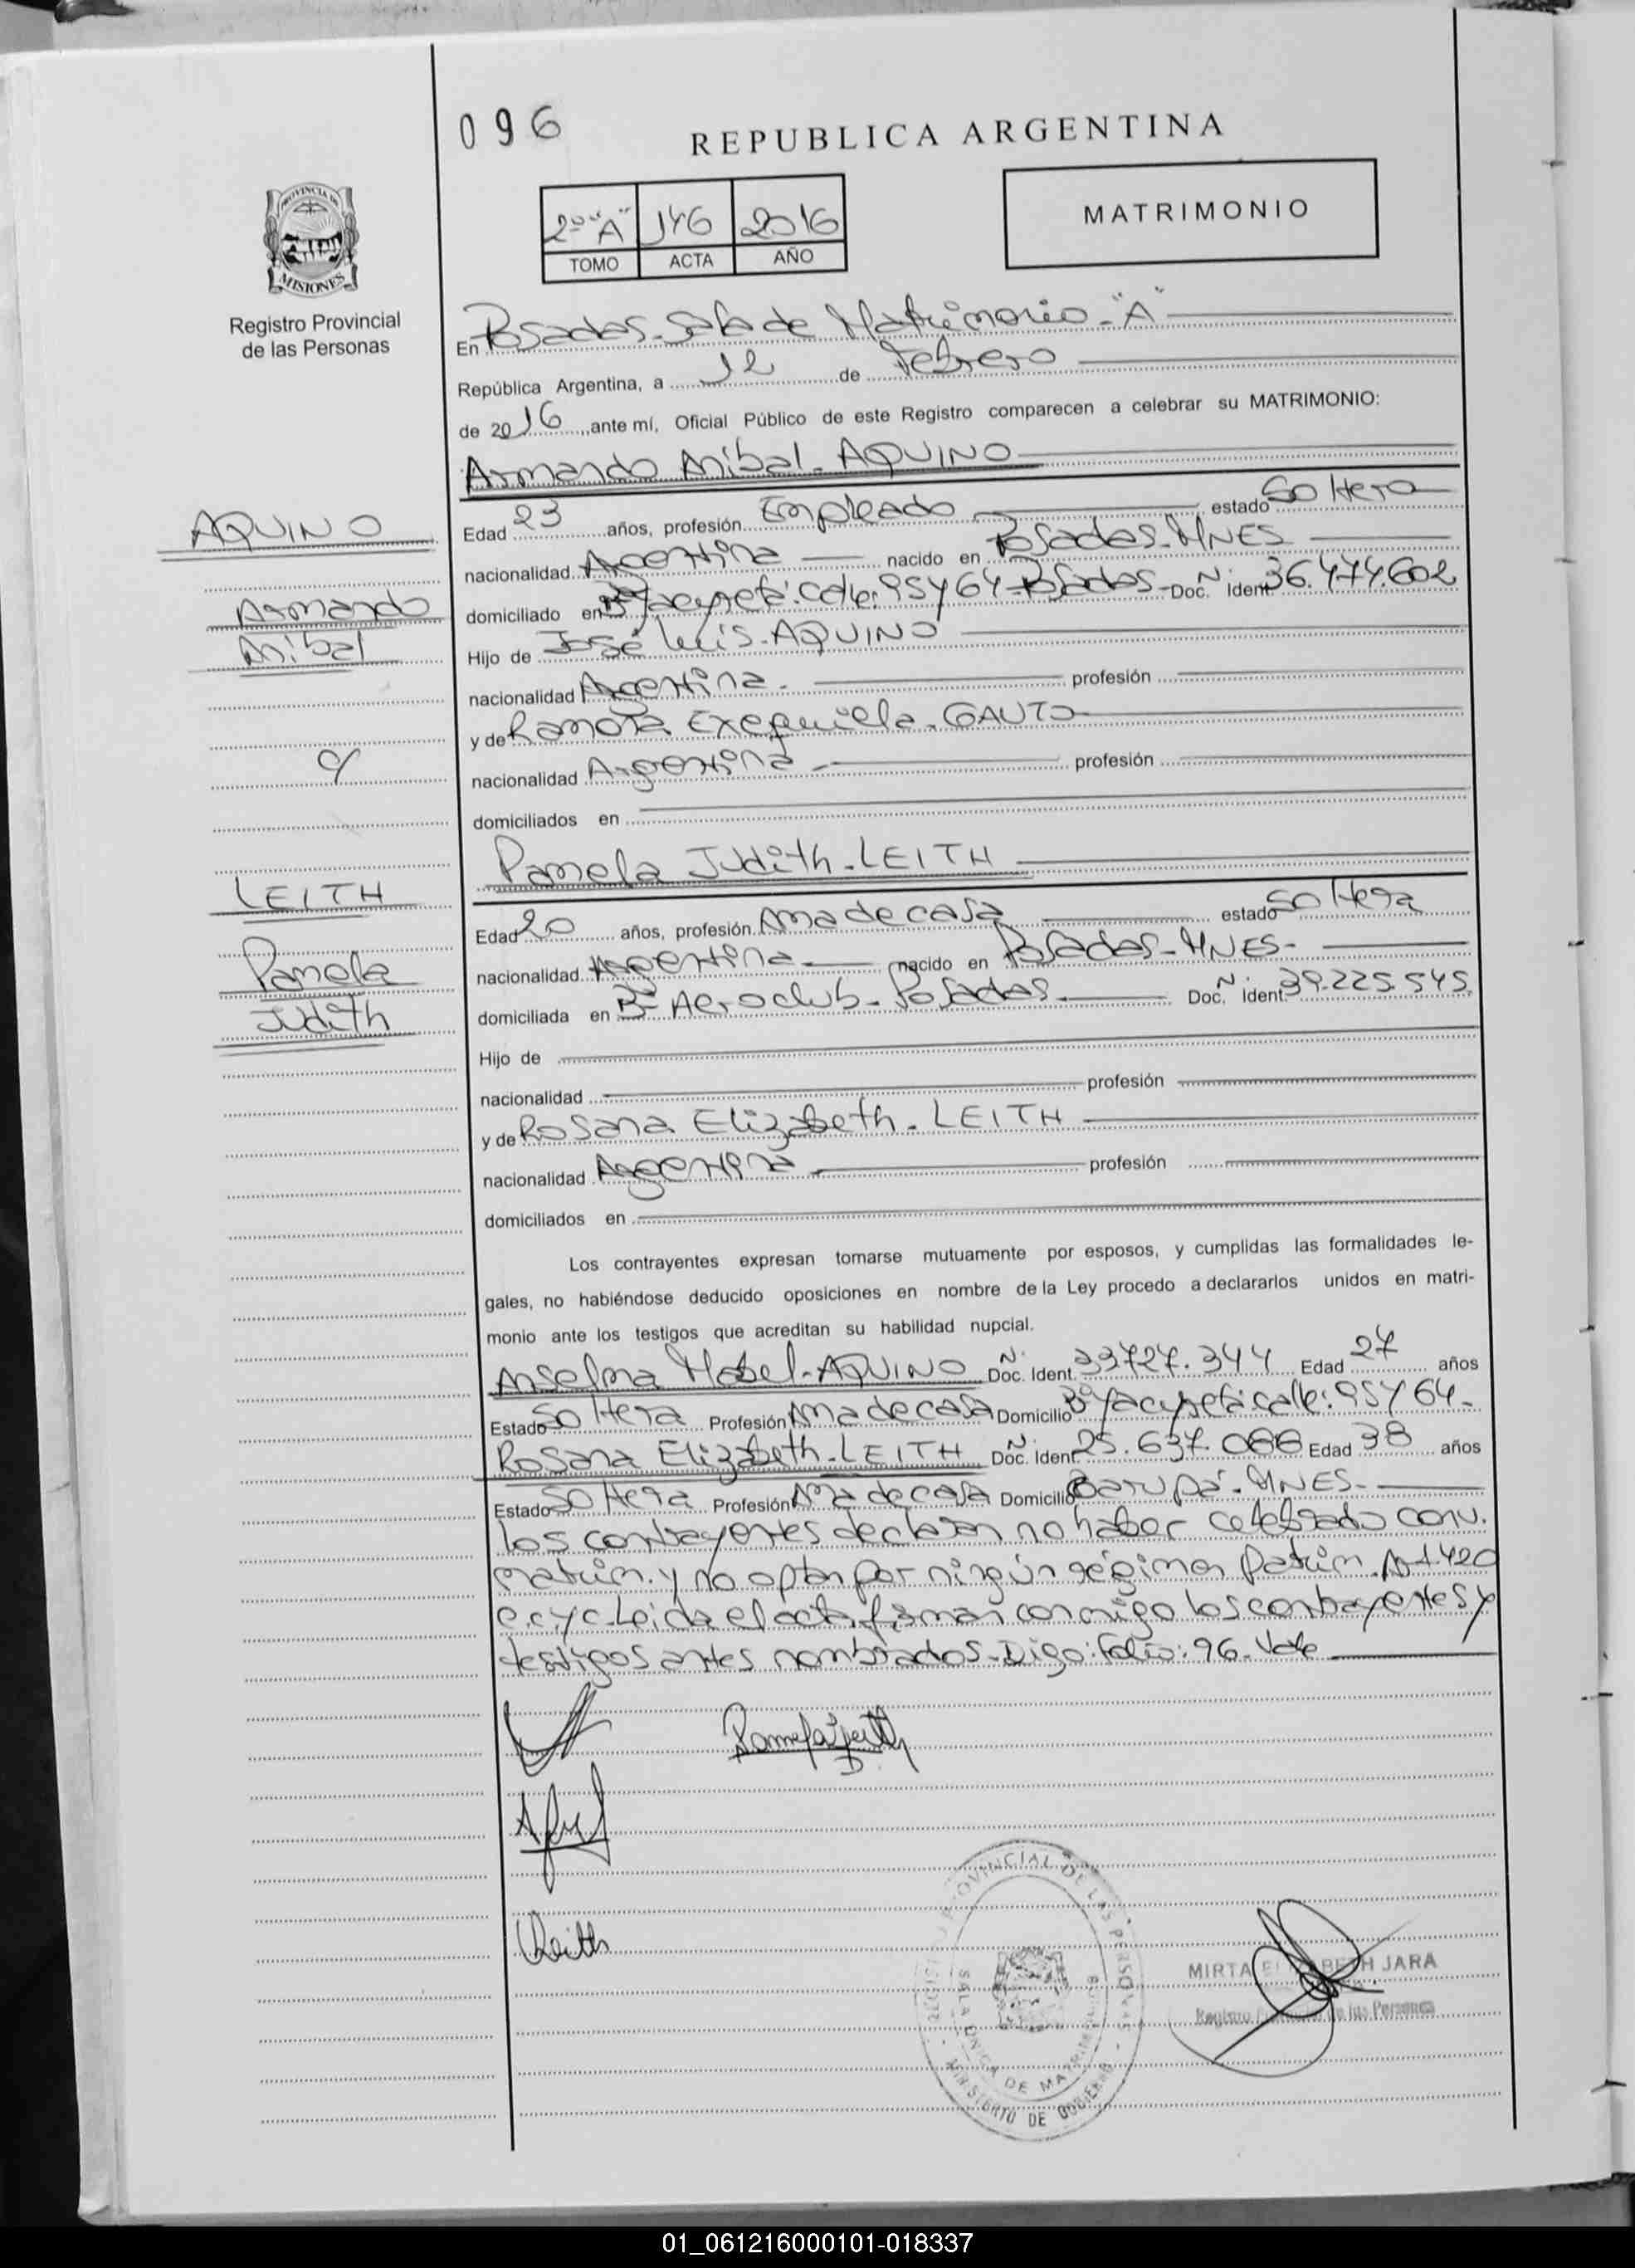 096
REPUBLICA ARGENTINA
PROVINCIA DE
MISIONES
Registro Provincial
de las Personas
2º "A" 146 2016
TOMO ACTA AÑO
MATRIMONIO
En Posadas-Sala de Matrimonio-"A"
República Argentina, a 12 de Febrero
de 2016, ante mí, Oficial Público de este Registro comparecen a celebrar su MATRIMONIO:
Armando Anibal-AQUINO
AQUINO
Armando
Anibal
Edad 23 años, profesión Empleado estado Soltero
nacionalidad Argentina nacido en Posadas-MNES
domiciliado en Bº Yacyretá: calle: 95 y 64-Posadas-Doc. Nº Ident 36.474.602
Hijo de José Luis-AQUINO
nacionalidad Argentina- profesión
y de Ramona Exequiela-GAUTO
nacionalidad Argentina- profesión
domiciliados en
c/
LEITH
Pamela
Judith
Pamela Judith-LEITH
Edad 20 años, profesión Ama de casa estado Soltera
nacionalidad Argentina nacido en Posadas-MNES-
domiciliada en Bº Aeroclub-Posadas Doc. Nº Ident 39.225.545.
Hijo de
nacionalidad profesión
y de Rosana Elizabeth-LEITH
nacionalidad Argentina profesión
domiciliados en
Los contrayentes expresan tomarse mutuamente por esposos, y cumplidas las formalidades le-
gales, no habiéndose deducido oposiciones en nombre de la Ley procedo a declararlos unidos en matri-
monio ante los testigos que acreditan su habilidad nupcial.
Anselma Mabel-AQUINO Doc. Nº Ident. 33.727.344 Edad 27 años
Estado Soltera Profesión Ama de casa Domicilio Bº Yacyretá: calle: 95 y 64-
Rosana Elizabeth-LEITH Doc. Nº Ident. 25.637.066 Edad 38 años
Estado Soltera Profesión Ama de casa Domicilio Garupá-MNES-
los contrayentes declaran no haber celebrado conv.
matrim. y no optan por ningún régimen patrim. A-1420
c.c.yc. Leida el acta firman conmigo los contrayentes y
testigos antes nombrados-Digo: Folio: 96-Vale
Pamela Leith
Leith
REGISTRO PROVINCIAL DE LAS PERSONAS
SALA UNICA DE MATRIMONIOS
MINISTERIO DE GOBIERNO
MIRTA ELIZABETH JARA
Registro Provincial de las Personas
01_061216000101-018337